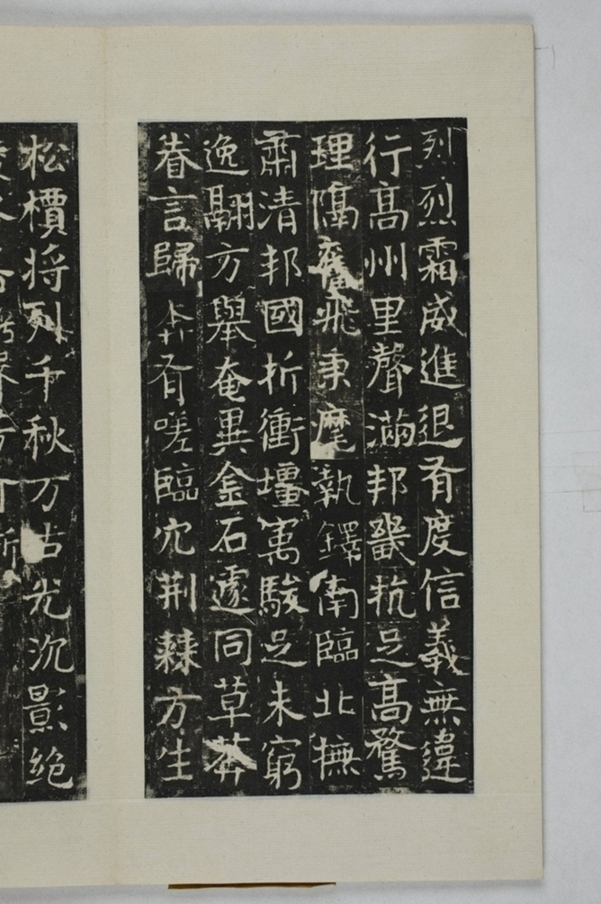 烈烈霜威進退有度信義無違
行高州里聲滿邦畿抗足高騖
理隔奮飛秉麾執鐸南臨北撫
肅清邦國折衝壃㝢駿足未窮
逸翮方舉奄異金石遽同草莽
眷言歸葬有嗟臨穴荆棘方生
松檟將列千秋万古光沉影絶